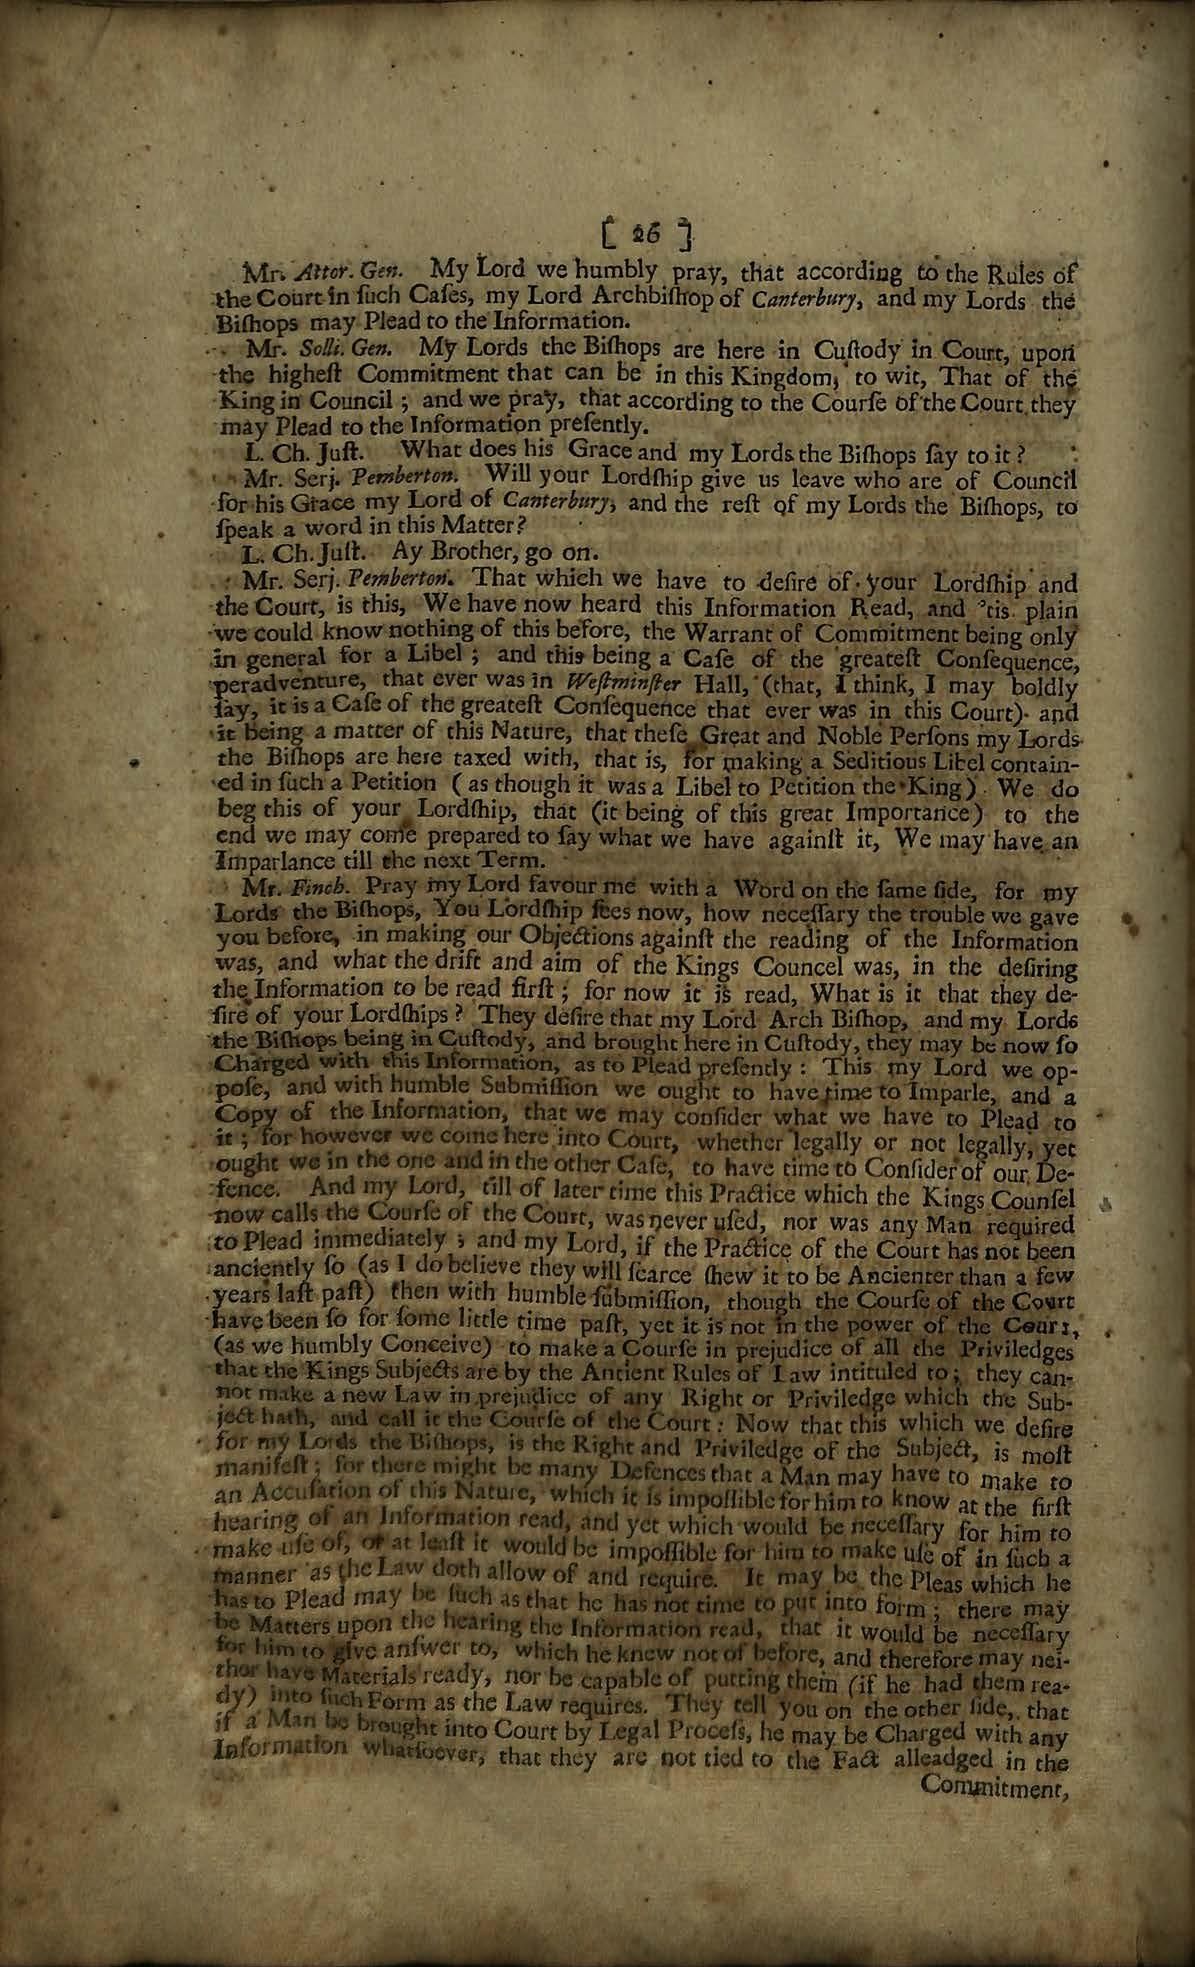 [ 26 ]
Mr. Attor. Gen. My Lord we humbly pray, that according to the Rules of
the Court in ſuch Caſes, my Lord Archbiſhop of Canterbury, and my Lords the
Biſhops may Plead to the Information.
Mr. Solli. Gen. My Lords the Biſhops are here in Cuſtody in Court, upon
the higheſt Commitment that can be in this Kingdom, to wit, That of the
King in Council ; and we pray, that according to the Courſe of the Court they
may Plead to the Information preſently.
L. Ch. Juſt. What does his Grace and my Lords the Biſhops ſay to it ?
Mr. Serj. Pemberton. Will your Lordſhip give us leave who are of Council
for his Grace my Lord of Canterbury, and the reſt of my Lords the Biſhops, to
ſpeak a word in this Matter?
L. Ch. Juſt. Ay Brother, go on.
Mr. Serj. Pemberton. That which we have to deſire of your Lordſhip and
the Court, is this, We have now heard this Information Read, and 'tis plain
we could know nothing of this before, the Warrant of Commitment being only
in general for a Libel ; and this being a Caſe of the greateſt Conſequence,
peradventure, that ever was in Weſtminſter Hall, (that, I think, I may boldly
ſay, it is a Caſe of the greateſt Conſequence that ever was in this Court) and
it being a matter of this Nature, that theſe Great and Noble Perſons my Lords
the Biſhops are here taxed with, that is, for making a Seditious Libel contain-
ed in ſuch a Petition ( as though it was a Libel to Petition the King) We do
beg this of your Lordſhip, that (it being of this great Importance) to the
end we may come prepared to ſay what we have againſt it, We may have an
Imparlance till the next Term.
Mr. Finch. Pray my Lord favour me with a Word on the ſame ſide, for my
Lords the Biſhops, You Lordſhip ſees now, how neceſſary the trouble we gave
you before, in making our Objections againſt the reading of the Information
was, and what the drift and aim of the Kings Councel was, in the deſiring
the Information to be read firſt ; for now it is read, What is it that they de-
ſire of your Lordſhips ? They deſire that my Lord Arch Biſhop, and my Lords
the Biſhops being in Cuſtody, and brought here in Cuſtody, they may be now ſo
Charged with this Information, as to Plead preſently : This my Lord we op-
poſe, and with humble Submiſſion we ought to have time to Imparle, and a
Copy of the Information, that we may conſider what we have to Plead to
it ; for however we come here into Court, whether legally or not legally, yet
ought we in the one and in the other Caſe, to have time to Conſider of our De-
fence. And my Lord, till of later time this Practice which the Kings Counſel
now calls the Courſe of the Court, was never uſed, nor was any Man required
to Plead immediately ; and my Lord, if the Practice of the Court has not been
anciently ſo (as I do believe they will ſcarce ſhew it to be Ancienter than a few
years laſt paſt) then with humble ſubmiſſion, though the Courſe of the Court
have been ſo for ſome little time paſt, yet it is not in the power of the Court,
(as we humbly Conceive) to make a Courſe in prejudice of all the Priviledges
that the Kings Subjects are by the Antient Rules of Law intituled to ; they can-
not make a new Law in prejudice of any Right or Priviledge which the Sub-
ject hath, and call it the Courſe of the Court : Now that this which we deſire
for my Lords the Biſhops, is the Right and Priviledge of the Subject, is moſt
manifeſt ; for there might be many Defences that a Man may have to make to
an Accuſation of this Nature, which it is impoſſible for him to know at the firſt
hearing of an Information read, and yet which would be neceſſary for him to
make uſe of, or at leaſt it would be impoſſible for him to make uſe of in ſuch a
manner as the Law doth allow of and require. It may be the Pleas which he
has to Plead may be ſuch as that he has not time to put into form ; there may
be Matters upon the hearing the Information read, that it would be neceſſary
for him to give anſwer to, which he knew not of before, and therefore may nei-
ther have Materials ready, nor be capable of putting them (if he had them rea-
dy) into ſuch Form as the Law requires. They tell you on the other ſide, that
if a Man be brought into Court by Legal Proceſs, he may be Charged with any
Information whatſoever, that they are not tied to the Fact alleadged in the
Commitment,